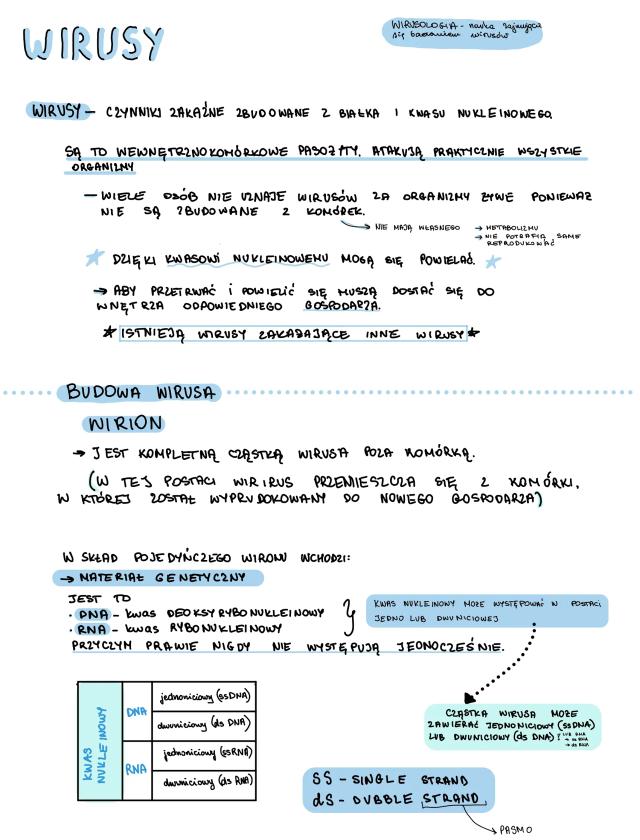 WIRUSY
WIRUSOLOGIA - nauka zajmująca
się badaniem wirusów
WIRUSY - CZYNNIKI ZAKAŹNE ZBUDOWANE Z BIAŁKA I KWASU NUKLEINOWEGO.
SĄ TO WEWNĘTRZNOKOMÓRKOWE PASOŻYTY. ATAKUJĄ PRAKTYCZNIE WSZYSTKIE
ORGANIZMY
— WIELE OSÓB NIE UZNAJE WIRUSÓW ZA ORGANIZMY ŻYWE PONIEWAŻ
NIE SĄ ZBUDOWANE Z KOMÓREK.
→ NIE MAJĄ WŁASNEGO → METABOLIZMU
→ NIE POTRAFIĄ SAME
REPRODUKOWAĆ
★ DZIĘKI KWASOWI NUKLEINOWEMU MOGĄ SIĘ POWIELAĆ. ★
→ ABY PRZETRWAĆ I POWIELIĆ SIĘ MUSZĄ DOSTAĆ SIĘ DO
WNĘTRZA ODPOWIEDNIEGO GOSPODARZA.
★ ISTNIEJĄ WIRUSY ZAKAŻAJĄCE INNE WIRUSY ★
BUDOWA WIRUSA
WIRION
→ JEST KOMPLETNĄ CZĄSTKĄ WIRUSA POZA KOMÓRKĄ.
(W TEJ POSTACI WIRIRUS PRZEMIESZCZA SIĘ Z KOMÓRKI,
W KTÓREJ ZOSTAŁ WYPRUDOKOWANY DO NOWEGO GOSPODARZA)
W SKŁAD POJEDYŃCZEGO WIRONU WCHODZI:
→ MATERIAŁ GENETYCZNY
JEST TO
· DNA - KWAS DEOKSYRYBONUKLEINOWY
· RNA - KWAS RYBONUKLEINOWY
PRZYCZYM PRAWIE NIGDY NIE WYSTĘPUJĄ JEDNOCZEŚNIE.
KWAS NUKLEINOWY MOŻE WYSTĘPOWAĆ W POSTACI
JEDNO LUB DWUNICIOWEJ
CZĄSTKA WIRUSA MOŻE
ZAWIERAĆ JEDNONICIOWY (ssDNA)
LUB DWUNICIOWY (ds DNA)
LUB RNA
→ ss RNA
→ ds RNA
KWAS NUKLEINOWY
DNA
jednoniciowy (ssDNA)
dwuniciowy (ds DNA)
RNA
jednoniciowy (ssRNA)
dwuniciowy (ds RNA)
SS - SINGLE STRAND
dS - DUBBLE STRAND
→ PASMO